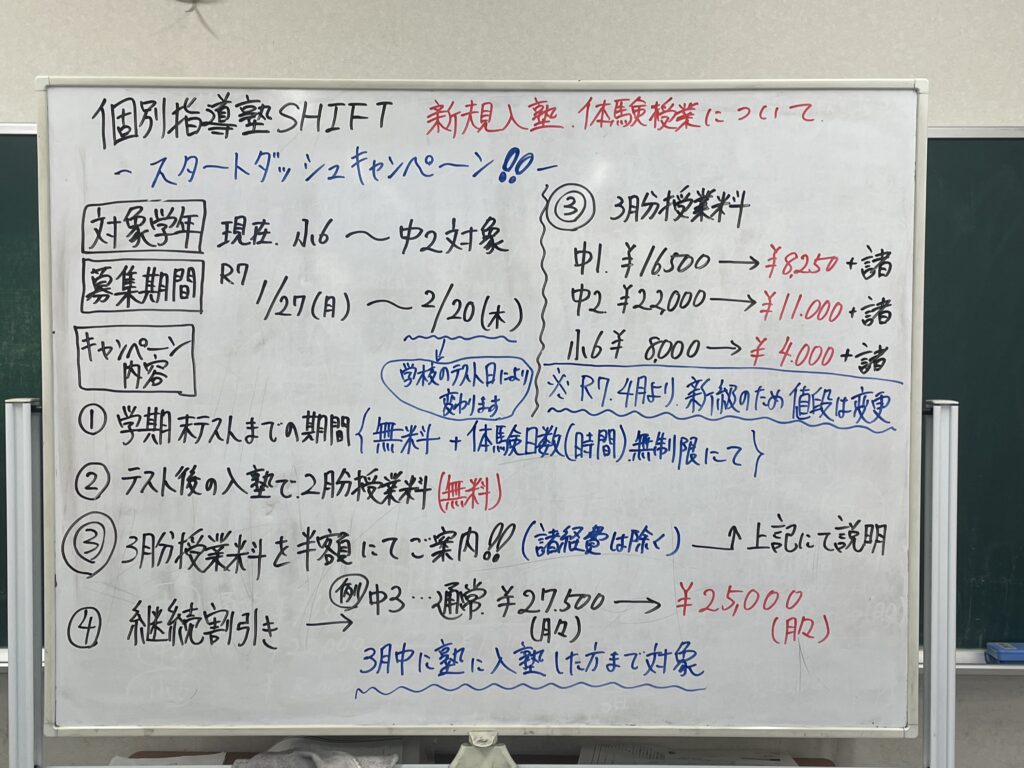 個別指導塾SHIFT 新規入塾.体験授業について.
~スタートダッシュキャンペーン!!~
対象学年 現在.小6 ~中2対象
募集期間 R7 1/27(月) ~ 2/20(木)
学校のテスト日により
変わります
キャンペーン
内容
③ 3月分授業料
中1.¥16500→¥8,250+諸
中2 ¥22,000→¥11.000+諸
小6 ¥ 8,000→¥ 4.000+諸
※ R7.4月より.新級のため値段は変更
① 学期末テストまでの期間{無料 + 体験日数(時間).無制限にて}
② テスト後の入塾で.2月分授業料(無料)
③ 3月分授業料を半額にてご案内!!(諸経費は除く)→上記にて説明
④ 継続割引き → 例 中3…通常.¥27.500→ ¥25,000
(月々) (月々)
3月中に塾に入塾した方まで対象